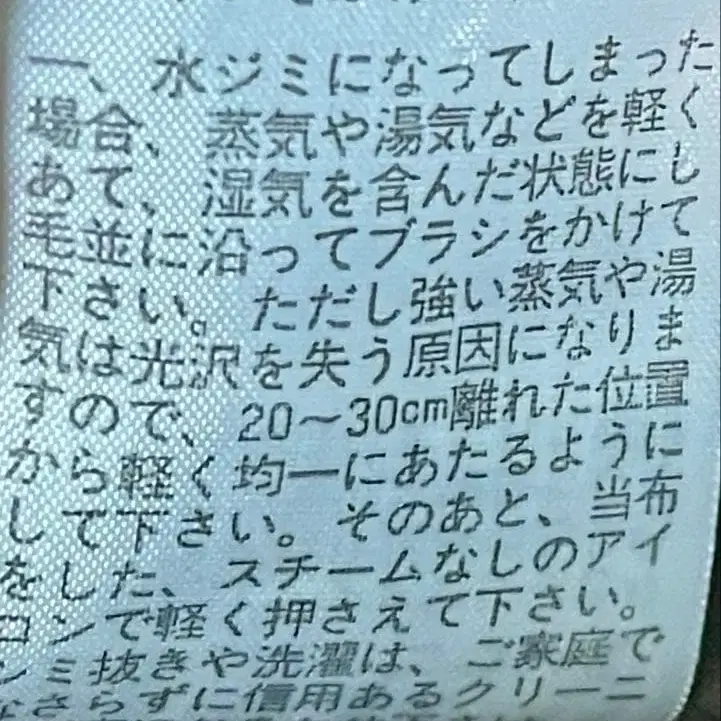 一、水ジミになってしまった
場合、蒸気や湯気などを軽く
あて、湿気を含んだ状態にし
毛並に沿ってブラシをかけて
下さい。ただし強い蒸気や湯
気は光沢を失う原因になりま
すので、20〜30cm離れた位置
から軽く均一にあたるように
して下さい。そのあと、当布
をした、スチームなしのアイ
ロンで軽く押さえて下さい。
シミ抜きや洗濯は、ご家庭で
なさらずに信用あるクリーニ